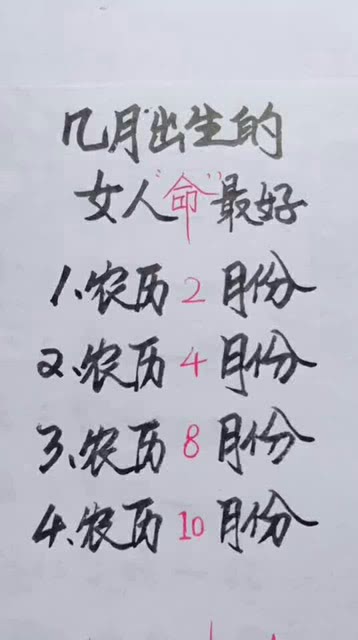 几月出生的
女人“命”最好
1、农历2月份
2、农历4月份
3、农历8月份
4、农历10月份